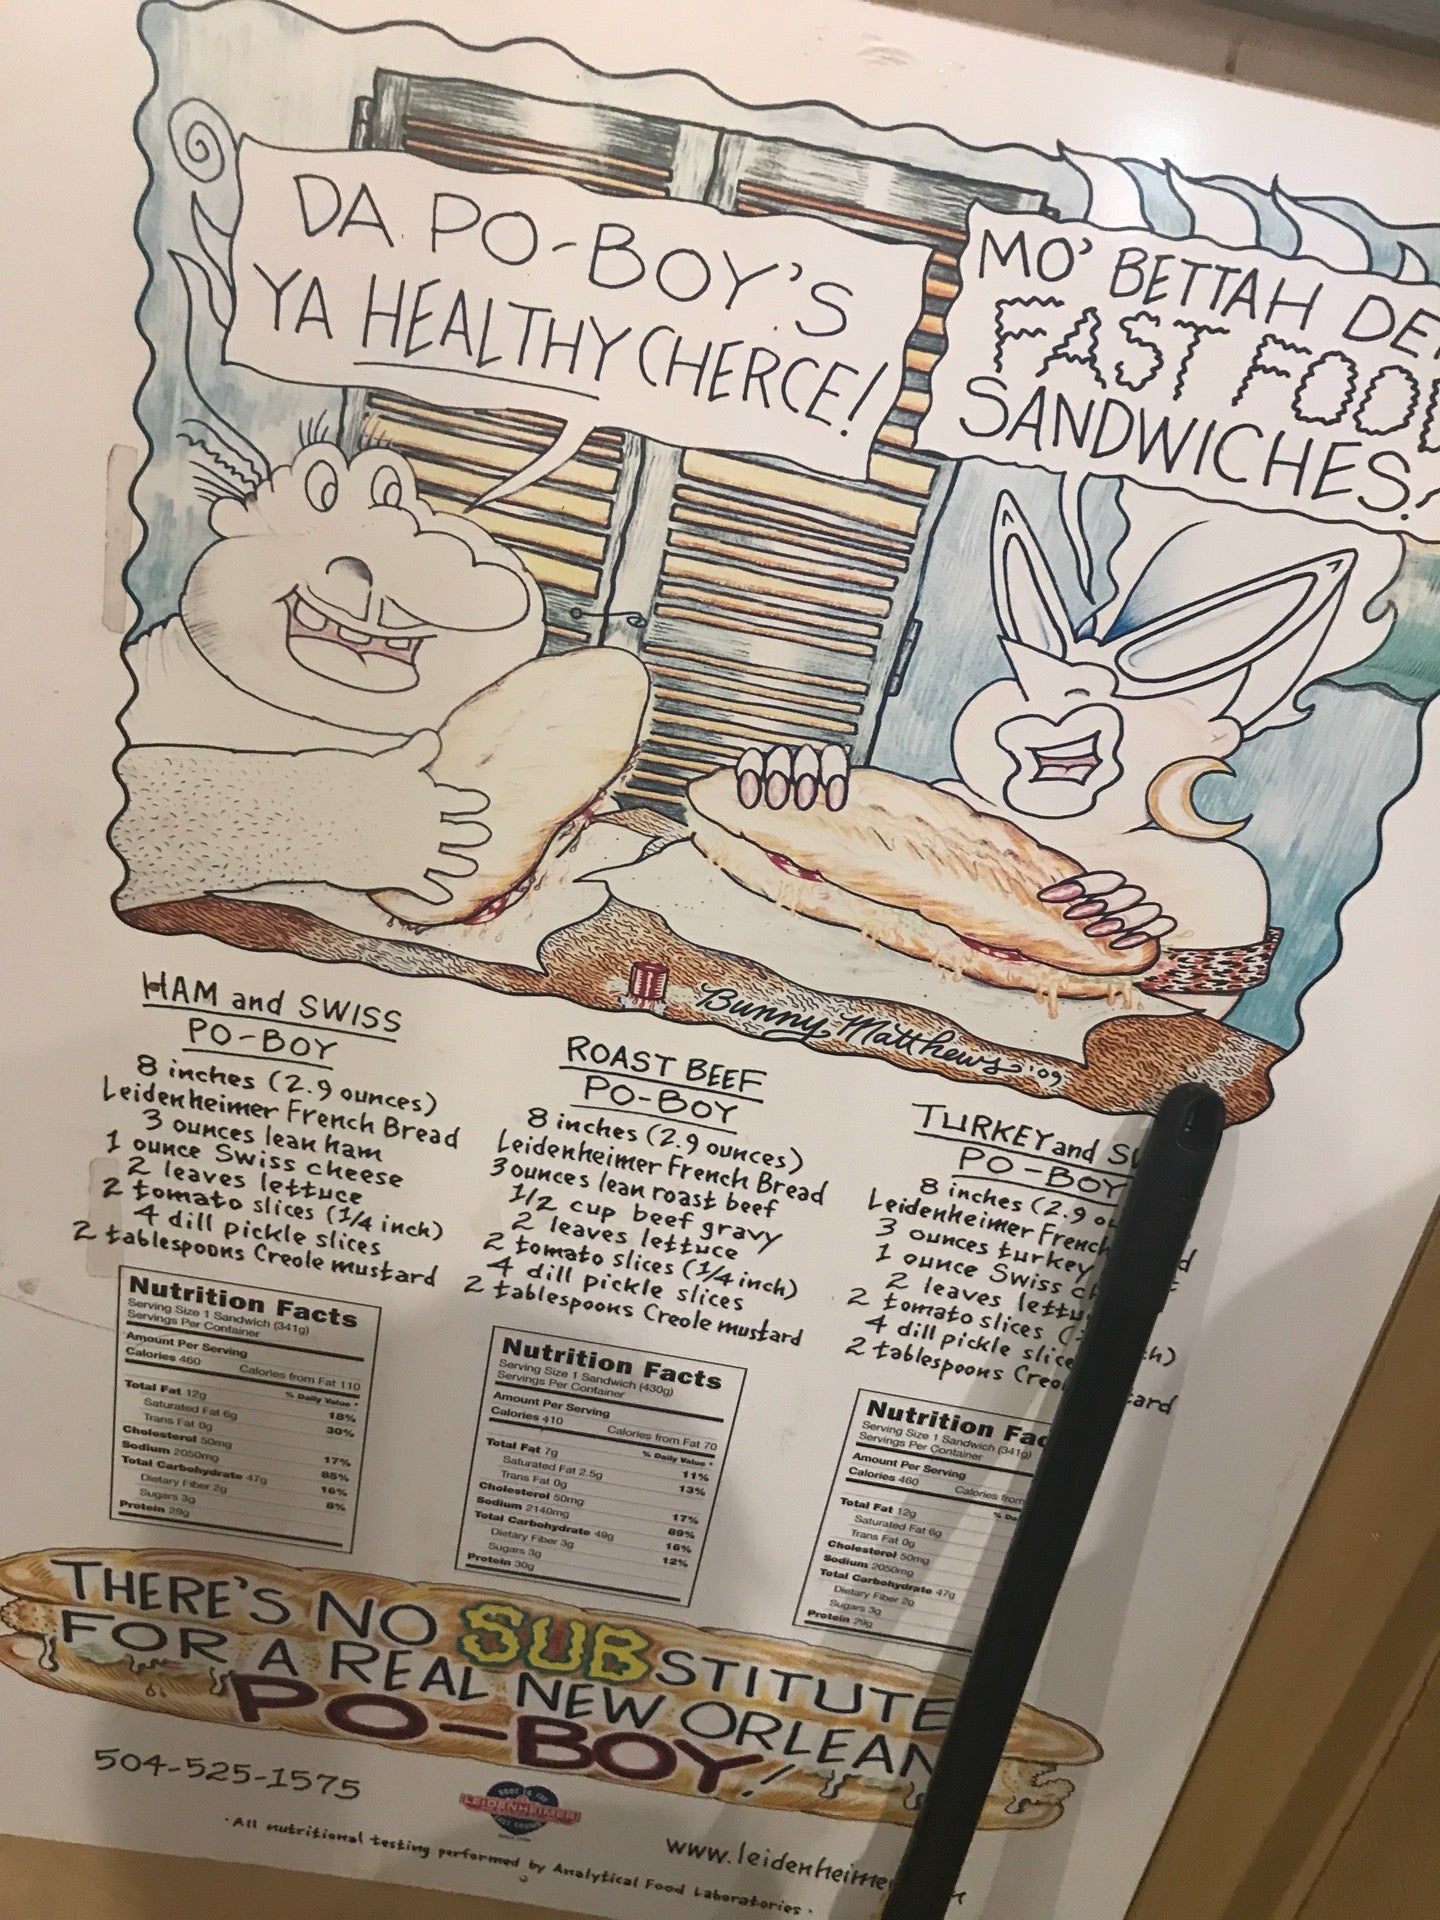 DA PO-BOY'S
YA HEALTHY CHERCE!
MO' BETTAH
FAST FOOD
SANDWICHES!
Bunny Matthews '09
HAM and SWISS
PO-BOY
8 inches (2.9 ounces)
Leidenheimer French Bread
3 ounces lean ham
1 ounce Swiss cheese
2 leaves lettuce
2 tomato slices (1/4 inch)
4 dill pickle slices
2 tablespoons Creole mustard
Nutrition Facts
Serving Size 1 Sandwich (341g)
Servings Per Container
Amount Per Serving
Calories 460 Calories from Fat 110
% Daily Value *
Total Fat 12g 18%
Saturated Fat 6g 30%
Trans Fat 0g
Cholesterol 50mg 17%
Sodium 2050mg 85%
Total Carbohydrate 47g 16%
Dietary Fiber 2g 8%
Sugars 3g
Protein 29g
ROAST BEEF
PO-BOY
8 inches (2.9 ounces)
Leidenheimer French Bread
3 ounces lean roast beef
1/2 cup beef gravy
2 leaves lettuce
2 tomato slices (1/4 inch)
4 dill pickle slices
2 tablespoons Creole mustard
Nutrition Facts
Serving Size 1 Sandwich (430g)
Servings Per Container
Amount Per Serving
Calories 410 Calories from Fat 70
% Daily Value *
Total Fat 7g 11%
Saturated Fat 2.5g 13%
Trans Fat 0g
Cholesterol 50mg 17%
Sodium 2140mg 89%
Total Carbohydrate 49g 16%
Dietary Fiber 3g 12%
Sugars 3g
Protein 30g
TURKEY and
PO-BOY
8 inches (2.9
Leidenheimer French
3 ounces turkey
1 ounce Swiss
2 leaves
2 tomato slices
4 dill pickle
2 tablespoons
Nutrition
Serving Size 1 Sandwich (341g)
Servings Per Container
Amount Per Serving
Calories 460 Calories from
Total Fat 12g
Saturated Fat 6g
Trans Fat 0g
Cholesterol 50mg
Sodium 2050mg
Total Carbohydrate 47g
Dietary Fiber 2g
Sugars 3g
Protein 29g
THERE'S NO SUBSTITUTE
FOR A REAL NEW
PO-BOY!
504-525-1575
LEIDENHEIMER
www.leidenheimer
· All nutritional testing performed by Analytical Food Laboratories ·